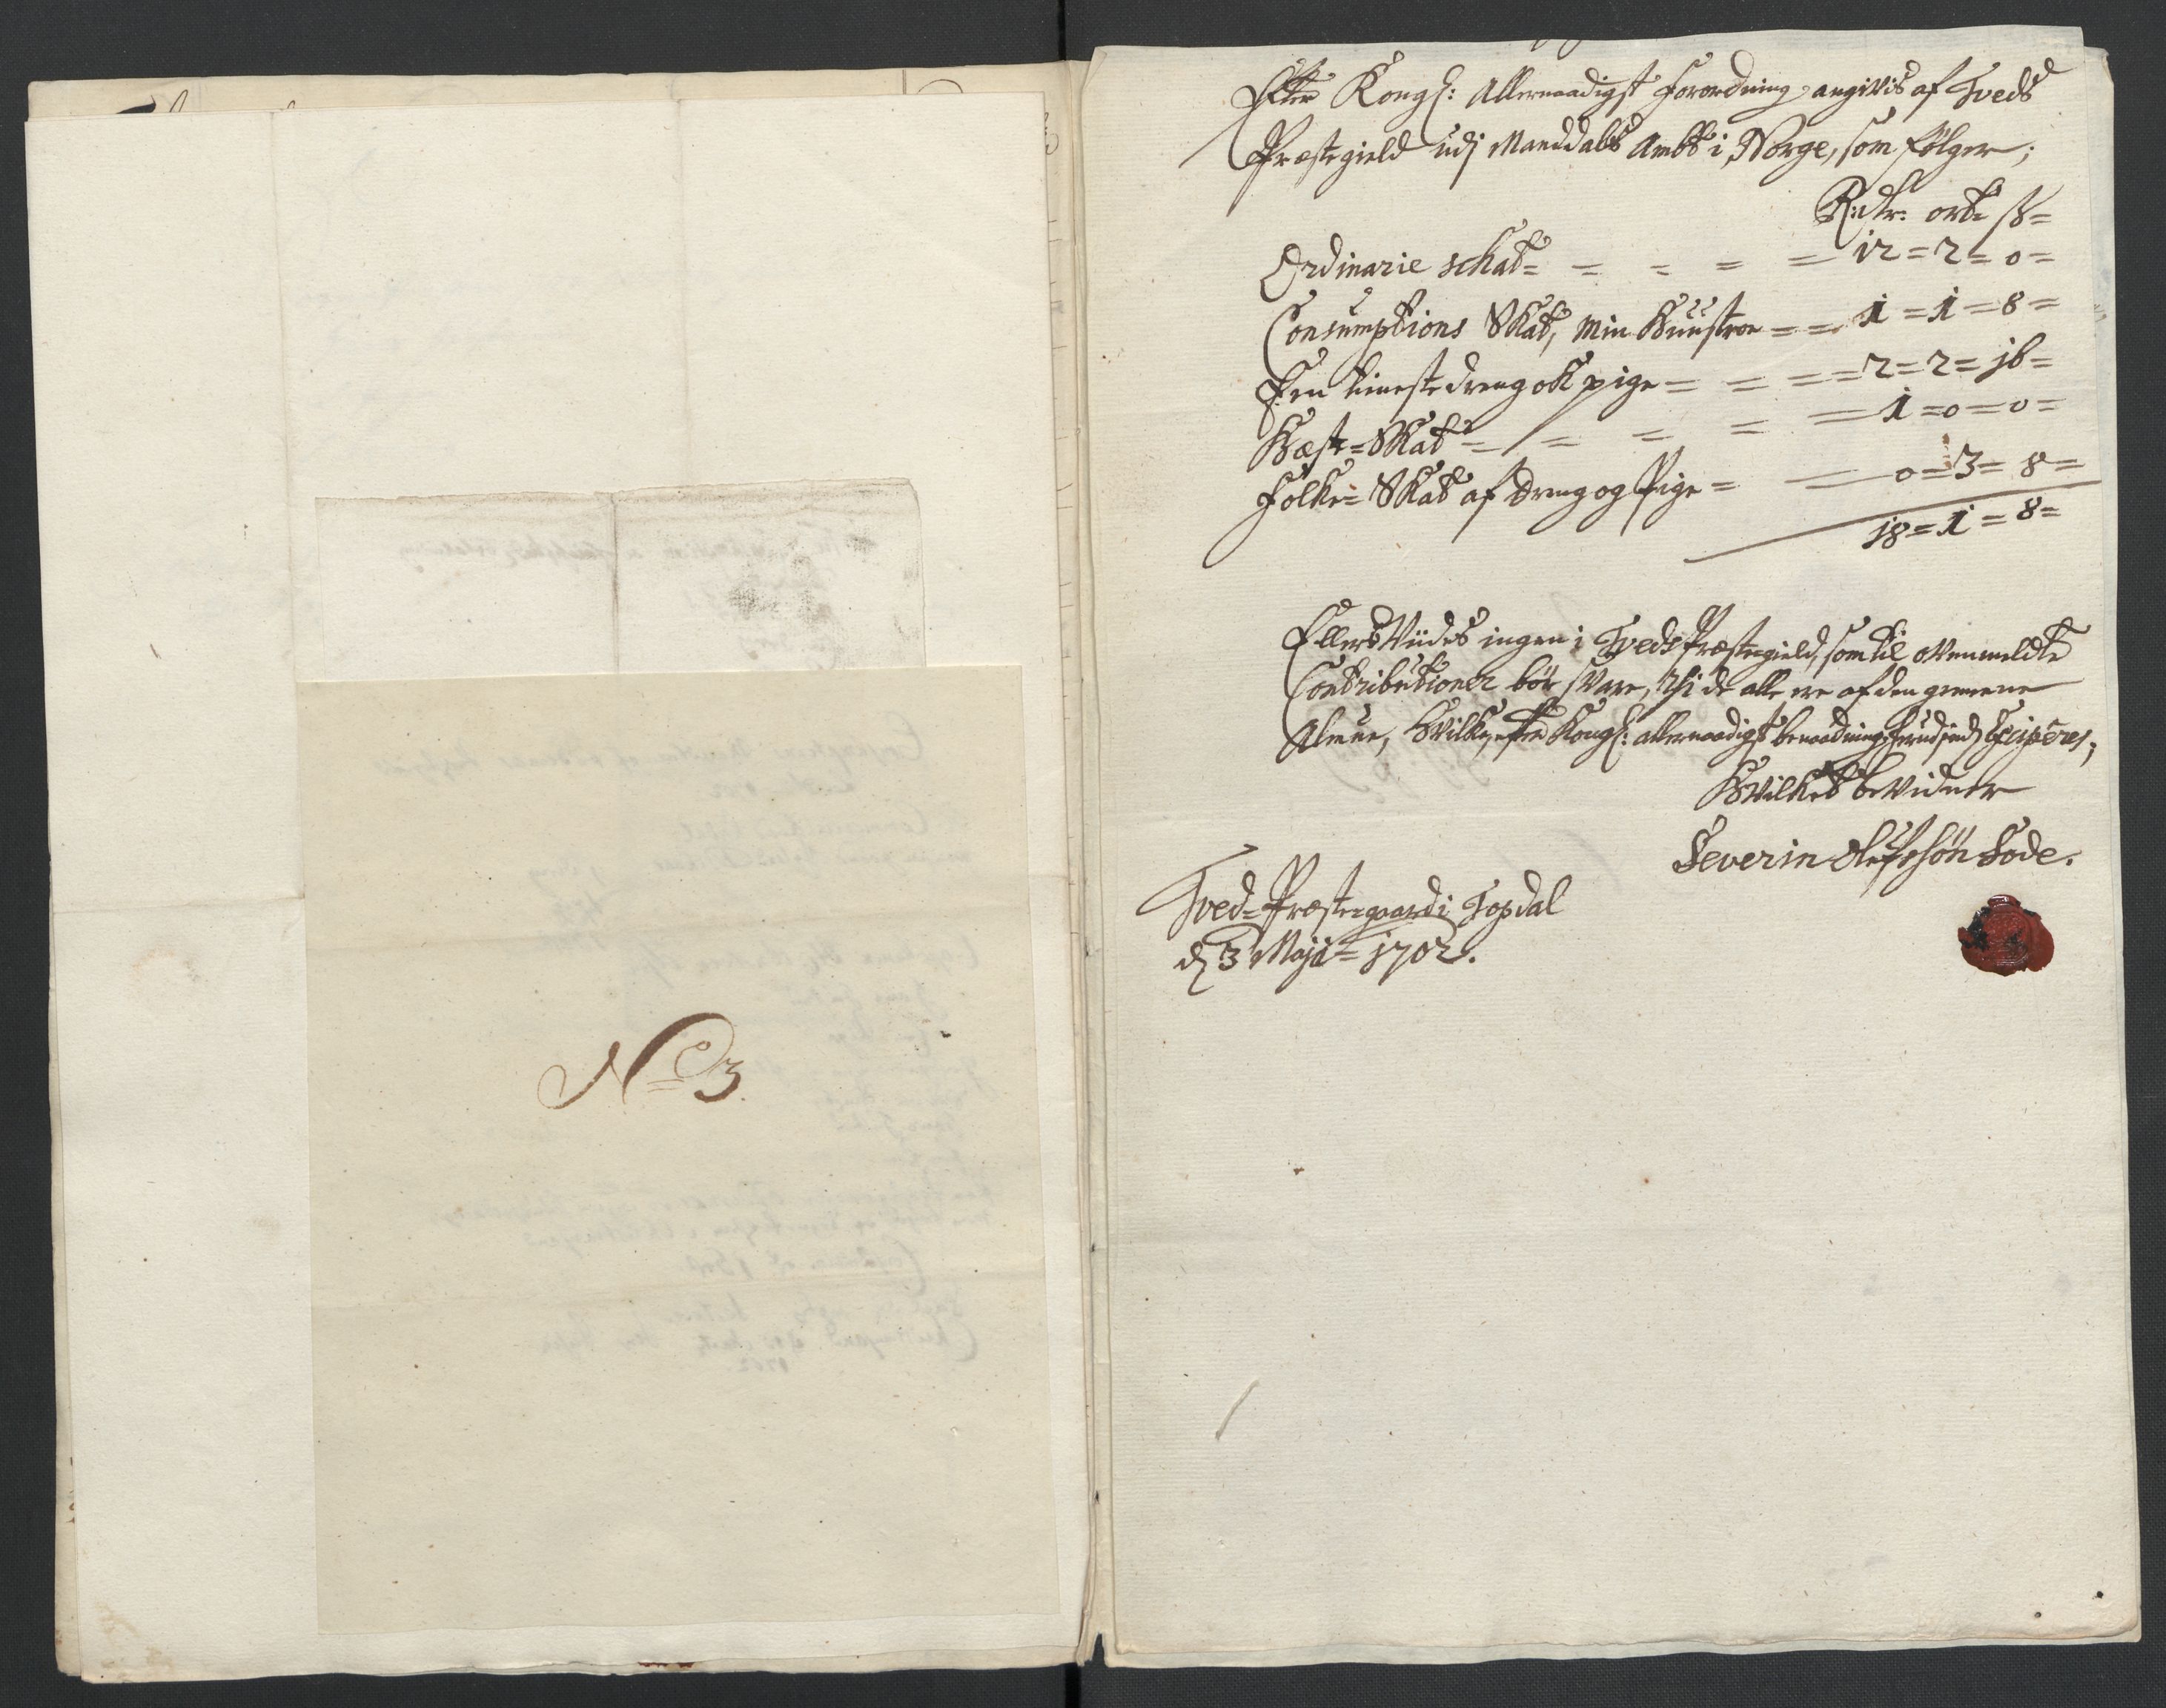 No 3.
Efter Kongl: Allernaadigst forordning angivis af Tveds
Præstegield udj Manddals Ambt i Norge, som følger;
Rdlr: ort ß=
Ordinarie schat= = = = = 12=2=0=
Consumptions Skat, min Huustroe == 1=1=8=
Een tieneste dreng ok pige = = == 2=2=16=
Hæste=Skat = = = = = 1=0=0=
Folke=Skat af dreng og Pige = = 0=3=8=
18=1=8=
Ellers Viides ingen i Tveds Præstegield, som til ovenmeldte
Contributioner bør svare, thi de alle ere af den gemeene
Almue, hvilke, efter Kongl: allernaadigst benaadning
Hvilket bevidner
Severin Olufssøn Bode.
Tved=Præstegaard i Topdal
d 3 Maji= 1702.